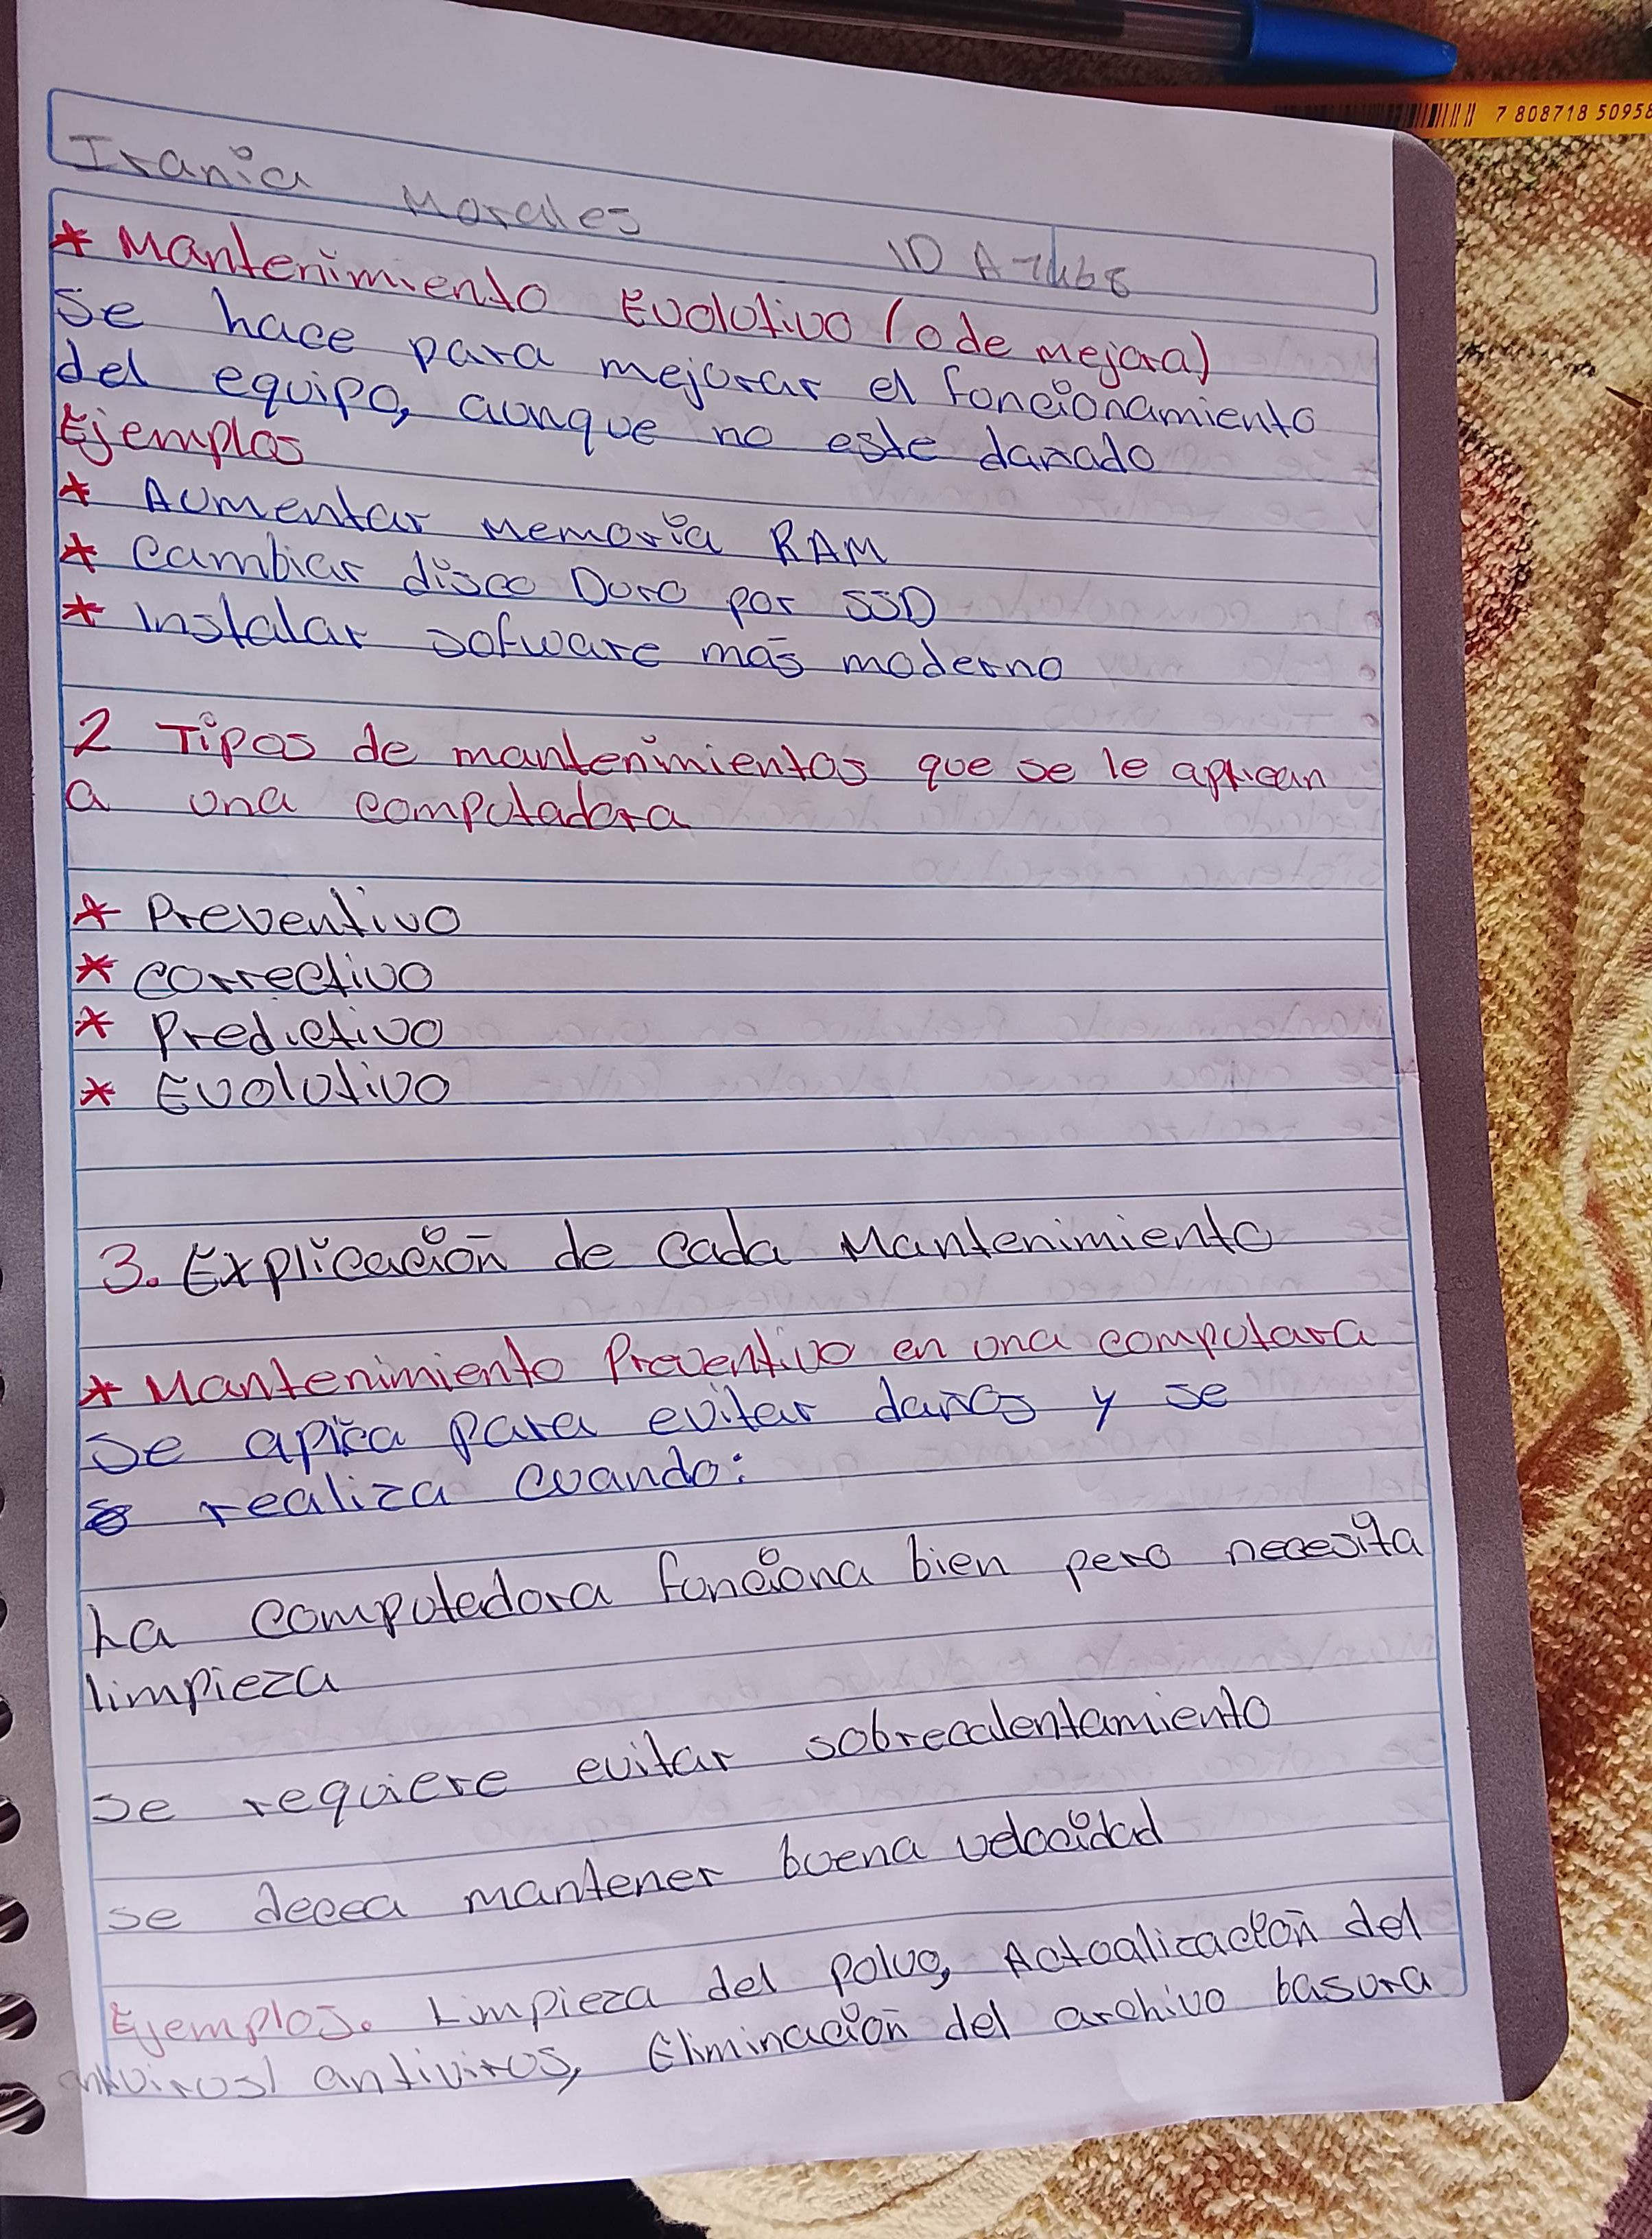 7 808718 50958
Irania Morales
ID A7468
* Mantenimiento Evolutivo (o de mejora)
Se hace para mejorar el funcionamiento
del equipo, aunque no este danado
Ejemplos
* Aumentar Memoria RAM
* Cambiar disco Duro por SSD
* Instalar sofware mas moderno
2 Tipos de mantenimientos que se le aplican
a una computadora
* Preventivo
* Correctivo
* Predictivo
* Evolutivo
3. Explicación de Cada Mantenimiento
* Mantenimiento Preventivo en una computara
Se aplica para evitar danos y se
realiza cuando:
La computadora funciona bien pero necesita
limpieza
Se requiere evitar sobrecalentamiento
se decea mantener buena velocidad
Ejemplos. Limpieza del polvo, Actualización del
antivirus) antivirus, Eliminación del archivo basura